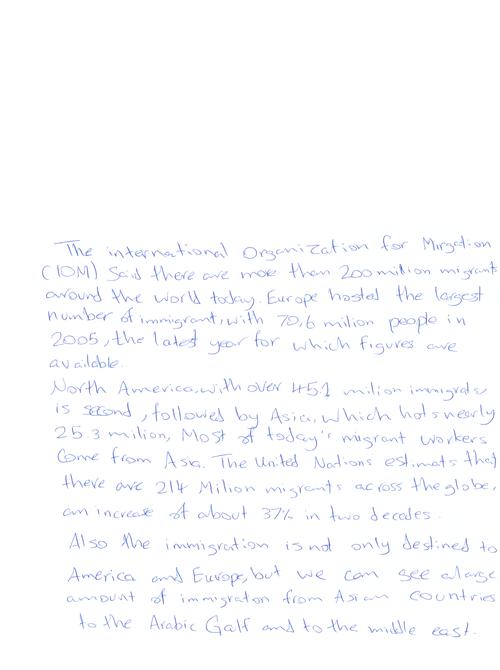 The international Organization for Mirgation
(IOM) Said there are more than 200 million migrants
around the world today. Europe hosted the largest
number of immigrant, with 70,6 milion people in
2005, the latest year for which figures are
available.
North America, with over 45.1 milion immigrats
is second, followed by Asia, which hots nearly
25.3 milion, Most of today's migrant workers
Come from Asia. The United Nations estimats that
there are 214 Milion migrants across the globe,
an increase of about 37% in two decades.
Also the immigration is not only destined to
America and Europe, but we can see a large
amount of immigraton from Asian countries
to the Arabic Galf and to the middle east.